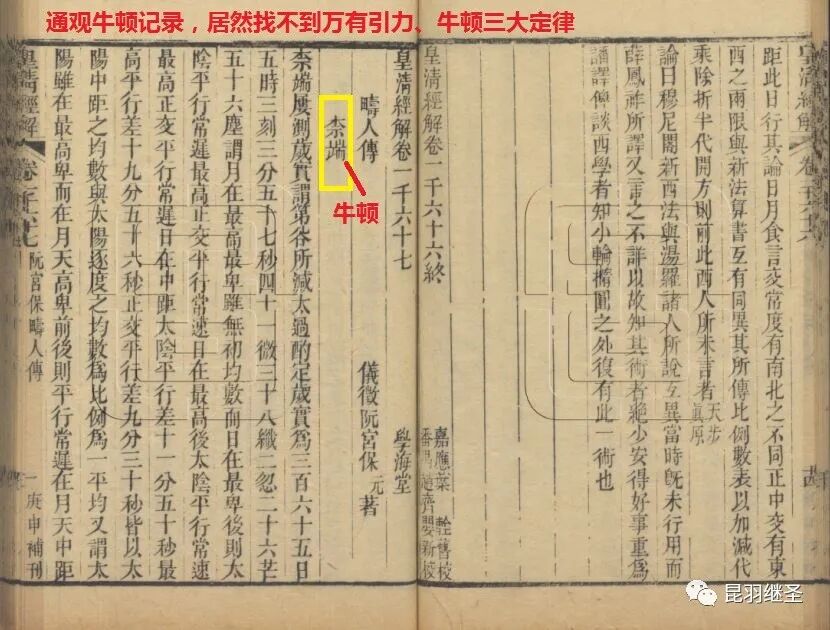 通观牛顿记录，居然找不到万有引力、牛顿三大定律
皇清經解
距此日行其論日月食言交常度有南北之不同正中交有東
西之兩限與新法算書互有同異其所傳比例數表以加減代
乘除折半代開方則前此西人所未言者天步真原
論曰穆尼閣新西法與湯羅諸人所說互異當時旣未行用而
薛鳳祚所譯又言之不詳以故知其術者絕少安得好事重爲
譒譯俾談西學者知小輪撱圓之外復有此一術也
皇清經解卷一千六十六終
嘉應葉 舊校
番禺趙齊嬰新校
皇清經解卷一千六十七 學海堂
疇人傳 儀徵阮宮保元著
柰端
牛顿
柰端屢測歲實謂第谷所減太過酌定歲實爲三百六十五日
五時三刻三分五十七秒四十一微三十八纖二忽二十六芒
五十六塵謂月在最高最卑雖無初均數而日在最卑後則太
陰平行常遲最高正交平行常速日在最高後太陰平行常速
最高正交平行常遲日在中距太陰平行差十一分五十秒最
高平行差十九分五十六秒正交平行差九分三十秒皆以太
陽中距之均數與太陽逐度之均數爲比例爲一平均又謂太
陽雖在最高卑而在月天高卑前後則平行常遲在月天中距
皇清經解 阮宮保疇人傳 一 庚申補刊
昆羽继圣